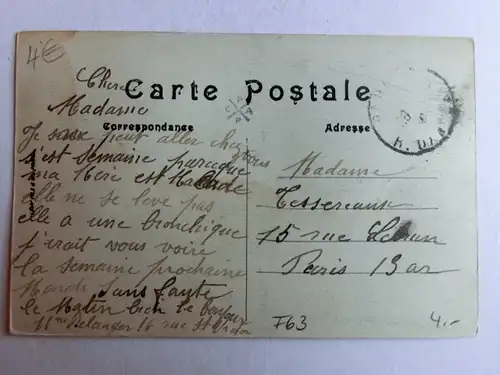 4€
Chere
Carte Postale
Madame
Correspondance
Adresse
Je peut aller chez vous
s'est semaine parceque
ma Mere est Malade
elle ne se leve pas
elle a une bronchique
j'irait vous voire
la semaine prochaine
Mardi sans faute
le Matin bien le bonjour
Belanger 16 rue St
Madame
Tessereause
15 rue Lebrun
Paris 13 ar
F63
4.-